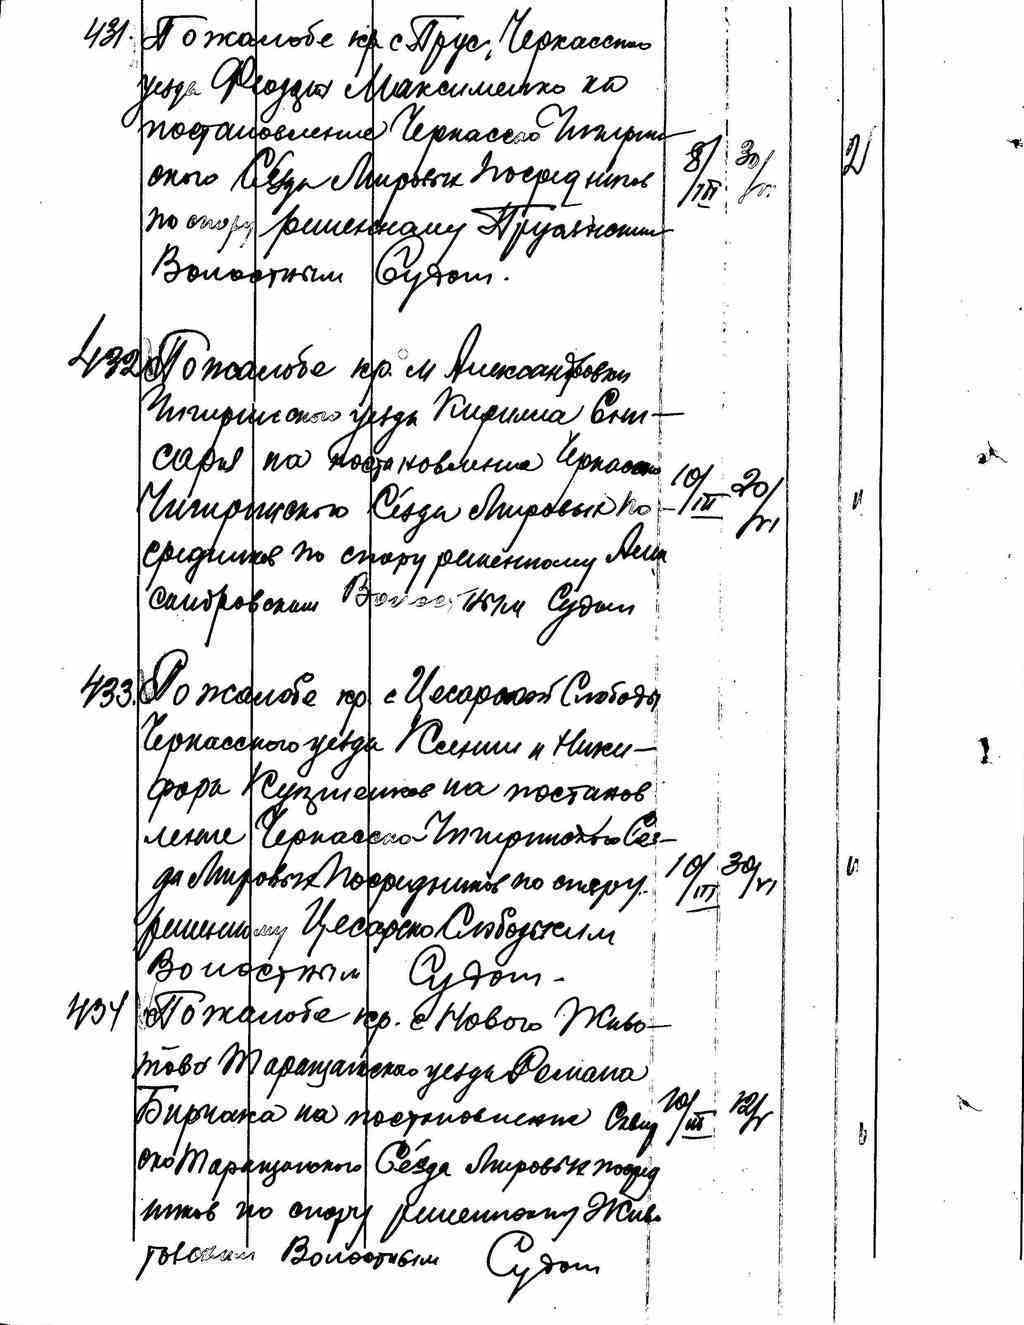 431. По жалобе кр. с. Прус, Черкасского
уезда Феодота Максименко на
постановление Черкасско Чигирин-
ского Сезда Мировых Посредников
по спору решенному Прусянским
Волостным Судом.
8/III 30/VI 2
432 По жалобе кр. м Александровки
Чигиринского уезда Кирилла Сни-
саря на постановление Черкасско
Чигиринского Сезда Мировых По-
средников по спору решенному Алек
сандровским Волостным Судом
10/III 20/VI "
433. По жалобе кр. с Цесарской Слободы
Черкасского уезда Ксении и Ники-
фора Кузменков на постанов
ление Черкасско-Чигиринского Сез-
да Мировых Посредников по спору
решенному Цесарско Слободским
Волостным Судом -
10/III 30/VI "
434 По жалобе кр. с Нового Живо-
това Таращанского уезда Романа
Бирчака на постановление Сквир
ско Таращанского Сезда Мировых посред
ников по спору решенному Живо
товским Волостным Судом
10/III 12/V "